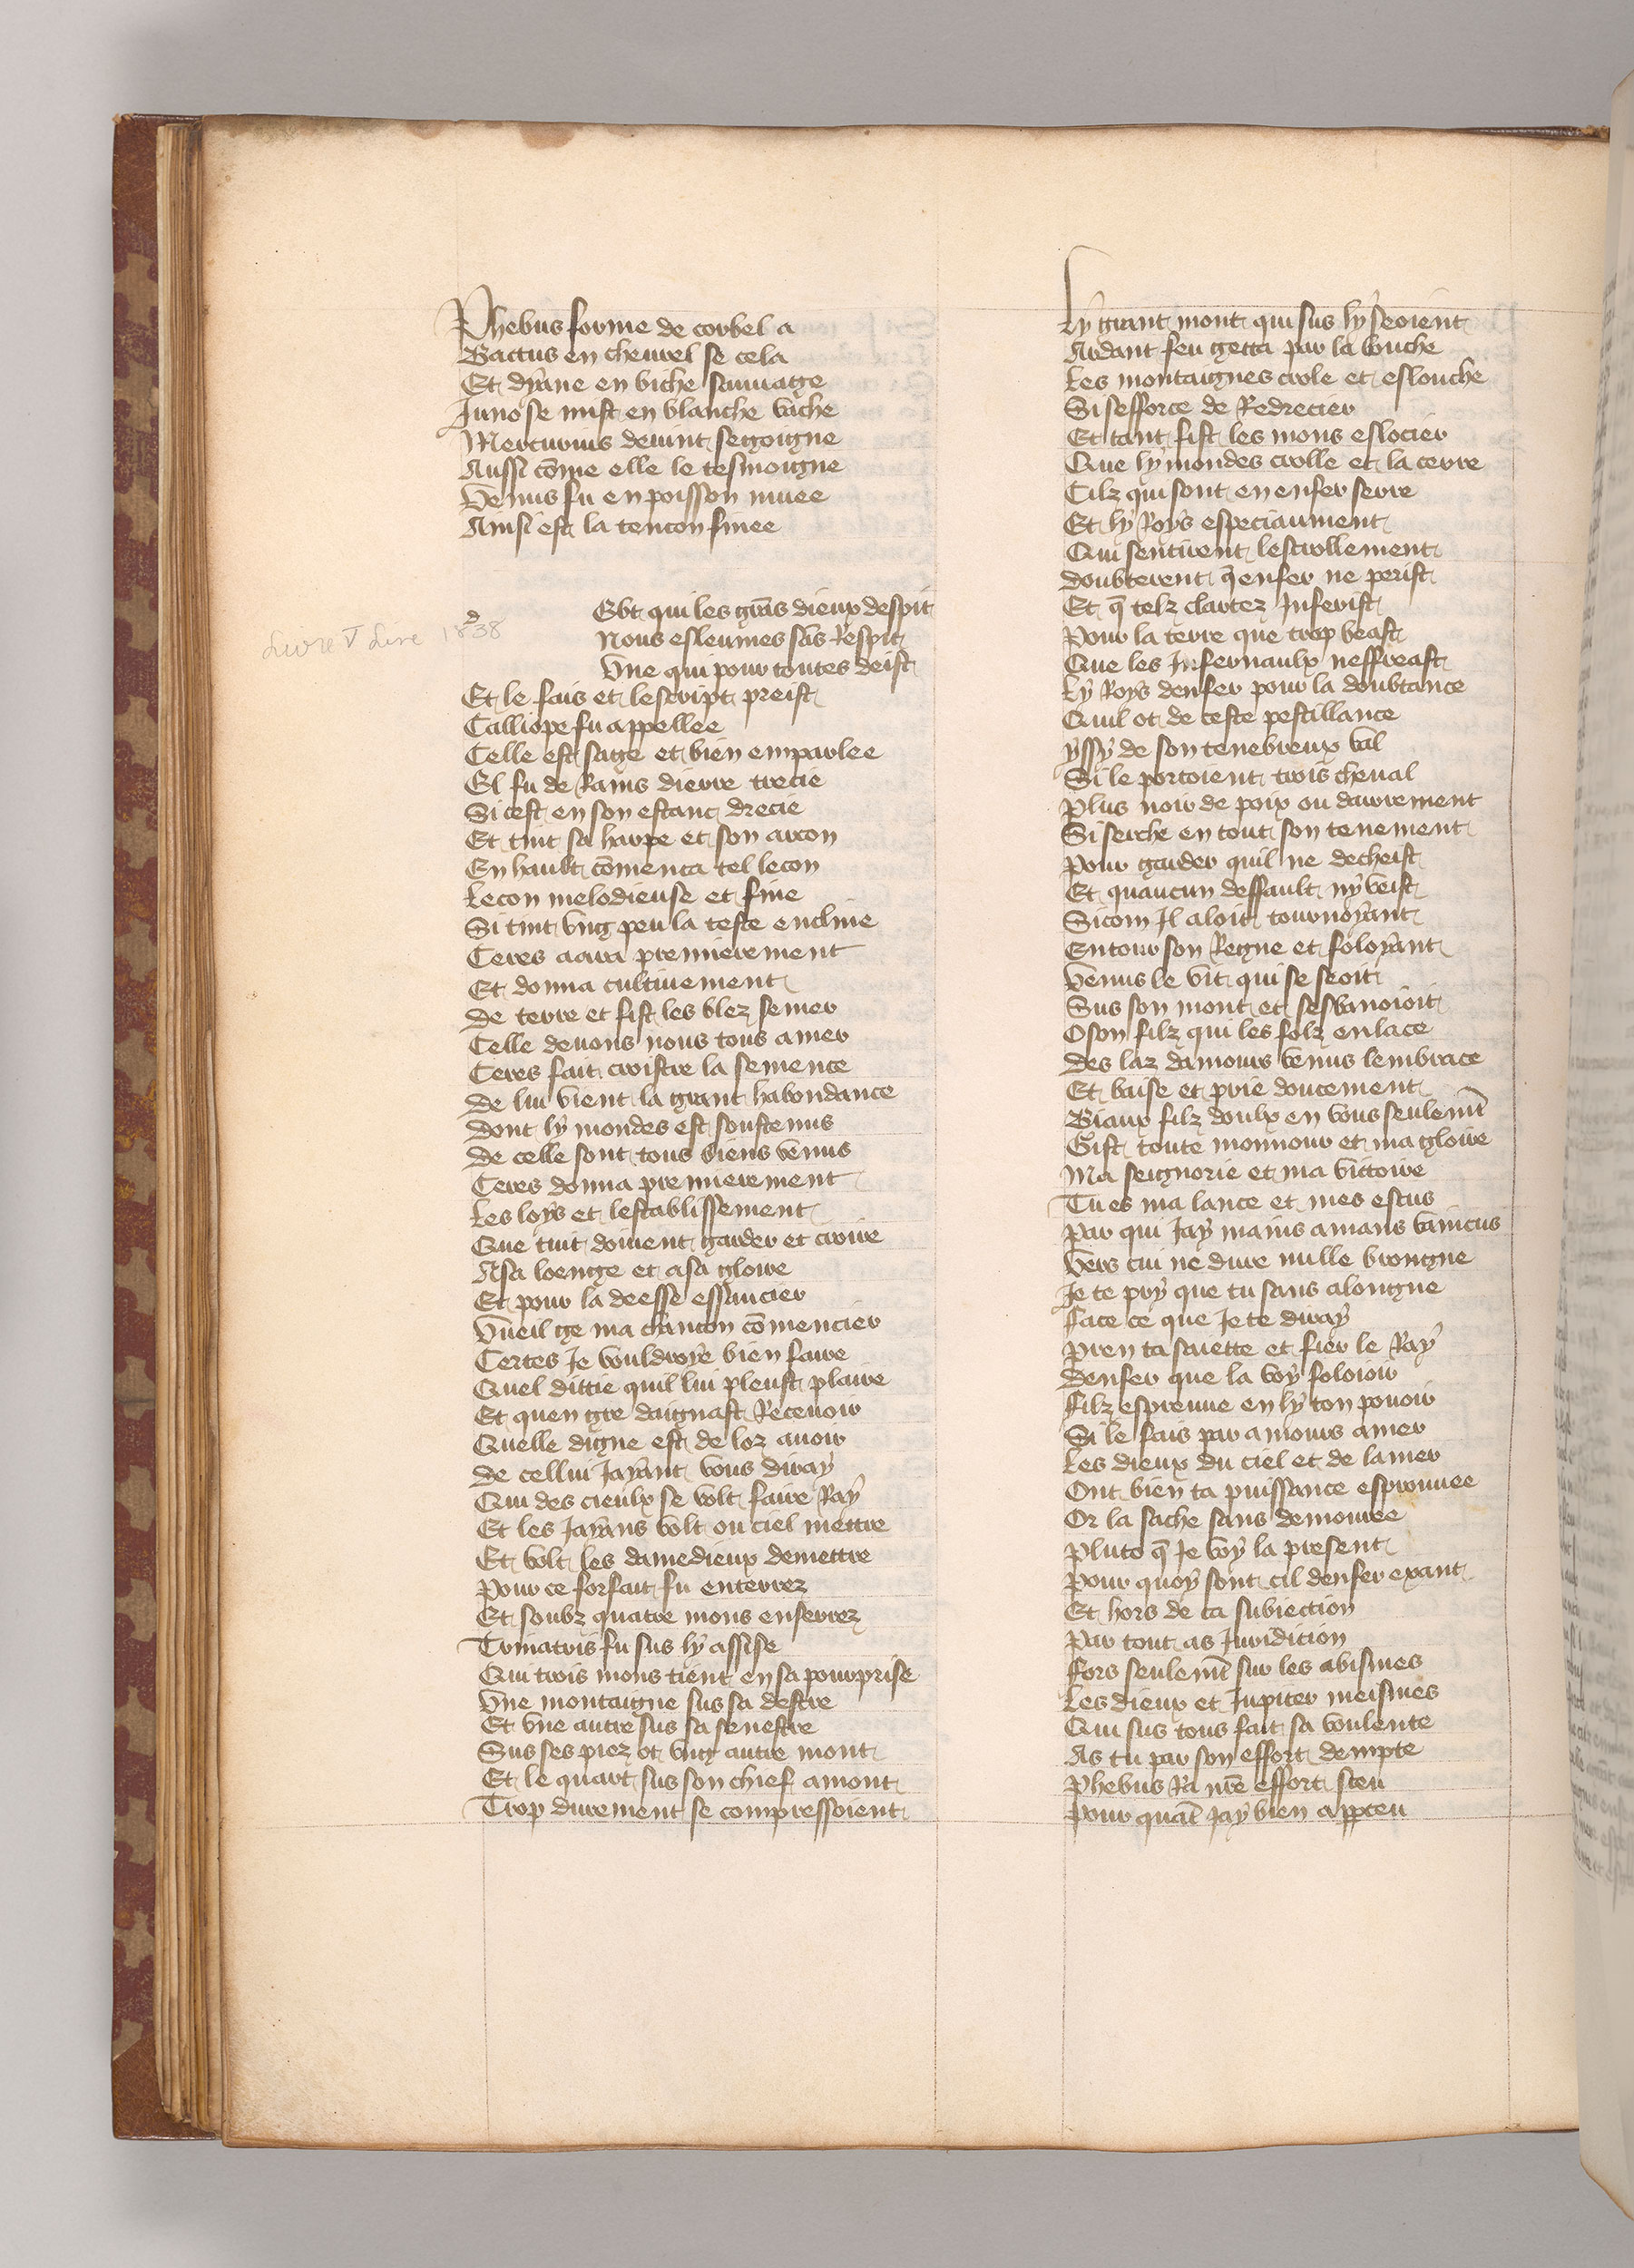 Phebus forme de corbel a
Bactus en cheurel se cela
Et dyane en biche sauuage
Juno se mist en blanche vache
Mercurius deuint segoigne
Aussi cõme elle le tesmoigne
Venus fu en poisson muee
Ainsi est la tencon finee
Ebt qui les grãs dieux despit
Nous esleumes sãs Respit
Vne qui pour toutes deist
Et le fais et lescript preist
Calliope fu appellee
Celle est sage et bien emparlee
El fu de Rams dierre trecie
Si cest en son estanc drecie
Et tint sa harpe et son arcon
En hault cõmenca tel lecon
Lecon melodieuse et fine
Si tint vng peu la teste encline
Ceres aara premierement
Et donna cultiuement
de terre et fist les blez semer
Celle deuons nous tous amer
Ceres fait croistre la semence
de lui vient la grant habondance
dont ly mondes est soustenus
de celle sont tous biens venus
Ceres donna premierement
Les loys et lestablissement
Que tuit doiuent garder et croire
A sa loenge et a sa gloire
Et pour la deesse essaucier
Vueil ge ma chancon cõmencier
Certes Je vouldroye bien faire
Quel dittie quil lui pleust plaire
Et quen gre daignast Receuoir
Quelle digne est de loz auoir
de cellui Jayant vous diray
Qui des cieulx se volt faire Ray
Et les Jayans volt ou ciel mettre
Et volt les damedieux demettre
Pour ce forfait fu enterrez
Et soubz quatre mons enserrez
Trinatris fu sus ly assise
Qui trois mons tient en sa pourprise
Vne montaigne sus sa destre
Et vne autre sus sa senestre
Sus ses piez ot vng autre mont
Et le quart sus son chief amont
Trop durement se compressoient
Livre V Line 1838
Ly grant mont qui sus ly seoient
Ardant feu getta par la bouche
Les montaignes crole et eslouche
Si sefforce de Redrecier
Et tant fist les mons eslocier
Que ly mondes crolle et la terre
Cilz qui sont en enfer serre
Et ly Roys especiaument
Qui sentirent lescrollement
doubterent q̃ enfer ne perist
Et q̃ telz clartez Inferist
Pour la terre que trop beast
Que les Infernaulx neffreast
Ly Roys denfer pour la doubtance
Quil ot de ceste pestillance
yssy de son tenebreux val
Si le portoient trois cheual
Plus noir de poix ou darrement
Si serche en tout son tenement
Pour garder quil ne decheist
Et quaucun deffault ny veist
Sicom Il aloit tournoyant
Entour son Regne et foloyant
Venus le vit qui se seoit
Sus son mont et sesbanoioit
O son filz qui les folz enlace
des laz damours venus lembrace
Et baise et prie doucement
Biaux filz doulx en vous seulemt̃
Gist toute monnour et ma gloire
Ma seignorie et ma victoire
Tu es ma lance et mes escus
Par qui Jay mains amans vaincus
Vers cui ne dure nulle brongne
Je te pry que tu sans alongne
Face ce que Je te diray
Pren ta saiette et fier le Ray
denfer que la voy foloioir
Filz espreuue en ly ton pouoir
Si le fais par amours amer
Les dieux du ciel et de la mer
Ont bien ta puissance esprouuee
Or la sache sans demouree
Pluto q̃ Je voy la present
Pour quoy sont cil denfer exant
Et hors de ta subiection
Par tout as Juridicion
Fors seulemt̃ sur les abismes
Les dieux et Jupiter meismes
Qui sus tous fait sa voulente
As tu par son effort dempte
Phebus Ra nr̃e effort sceu
Pour quãt Jay bien apperceu